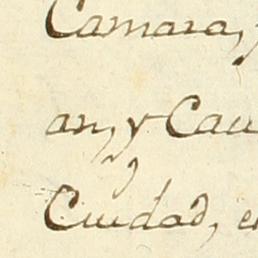 Camara,
an, y Cau
Ciudad, e